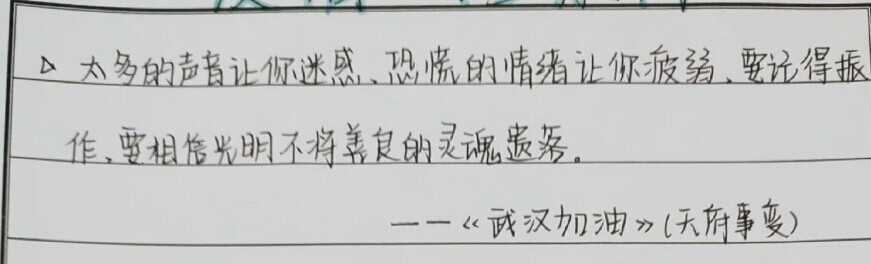 △ 太多的声音让你迷惑、恐慌的情绪让你疲弱、要记得振
作、要相信光明不将善良的灵魂遗落。
——《武汉加油》(天府事变)